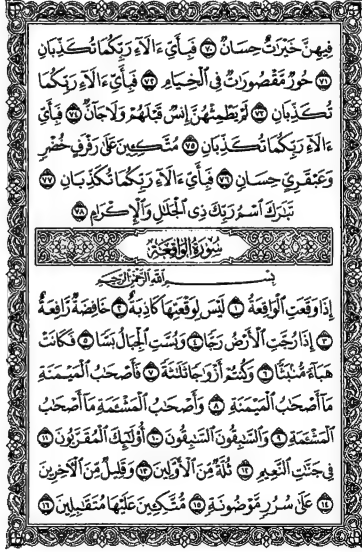 فِيهِنَّ خَيْرَٰتٌ حِسَانٌ ٧٠ فَبِأَىِّ ءَالَآءِ رَبِّكُمَا تُكَذِّبَانِ
٧١ حُورٌ مَّقْصُورَٰتٌ فِى ٱلْخِيَامِ ٧٢ فَبِأَىِّ ءَالَآءِ رَبِّكُمَا
تُكَذِّبَانِ ٧٣ لَمْ يَطْمِثْهُنَّ إِنسٌ قَبْلَهُمْ وَلَا جَآنٌّ ٧٤ فَبِأَىِّ
ءَالَآءِ رَبِّكُمَا تُكَذِّبَانِ ٧٥ مُتَّكِـِٔينَ عَلَىٰ رَفْرَفٍ خُضْرٍ
وَعَبْقَرِىٍّ حِسَانٍ ٧٦ فَبِأَىِّ ءَالَآءِ رَبِّكُمَا تُكَذِّبَانِ ٧٧
تَبَٰرَكَ ٱسْمُ رَبِّكَ ذِى ٱلْجَلَٰلِ وَٱلْإِكْرَامِ ٧٨
سُورَةُ الوَاقِعَةِ
بِسْمِ ٱللَّهِ ٱلرَّحْمَٰنِ ٱلرَّحِيمِ
إِذَا وَقَعَتِ ٱلْوَاقِعَةُ ١ لَيْسَ لِوَقْعَتِهَا كَاذِبَةٌ ٢ خَافِضَةٌ رَّافِعَةٌ
٣ إِذَا رُجَّتِ ٱلْأَرْضُ رَجًّا ٤ وَبُسَّتِ ٱلْجِبَالُ بَسًّا ٥ فَكَانَتْ
هَبَآءً مُّنۢبَثًّا ٦ وَكُنتُمْ أَزْوَٰجًا ثَلَٰثَةً ٧ فَأَصْحَٰبُ ٱلْمَيْمَنَةِ
مَآ أَصْحَٰبُ ٱلْمَيْمَنَةِ ٨ وَأَصْحَٰبُ ٱلْمَشْـَٔمَةِ مَآ أَصْحَٰبُ
ٱلْمَشْـَٔمَةِ ٩ وَٱلسَّٰبِقُونَ ٱلسَّٰبِقُونَ ١٠ أُو۟لَٰٓئِكَ ٱلْمُقَرَّبُونَ ١١
فِى جَنَّٰتِ ٱلنَّعِيمِ ١٢ ثُلَّةٌ مِّنَ ٱلْأَوَّلِينَ ١٣ وَقَلِيلٌ مِّنَ ٱلْءَاخِرِينَ
١٤ عَلَىٰ سُرُرٍ مَّوْضُونَةٍ ١٥ مُّتَّكِـِٔينَ عَلَيْهَا مُتَقَٰبِلِينَ ١٦